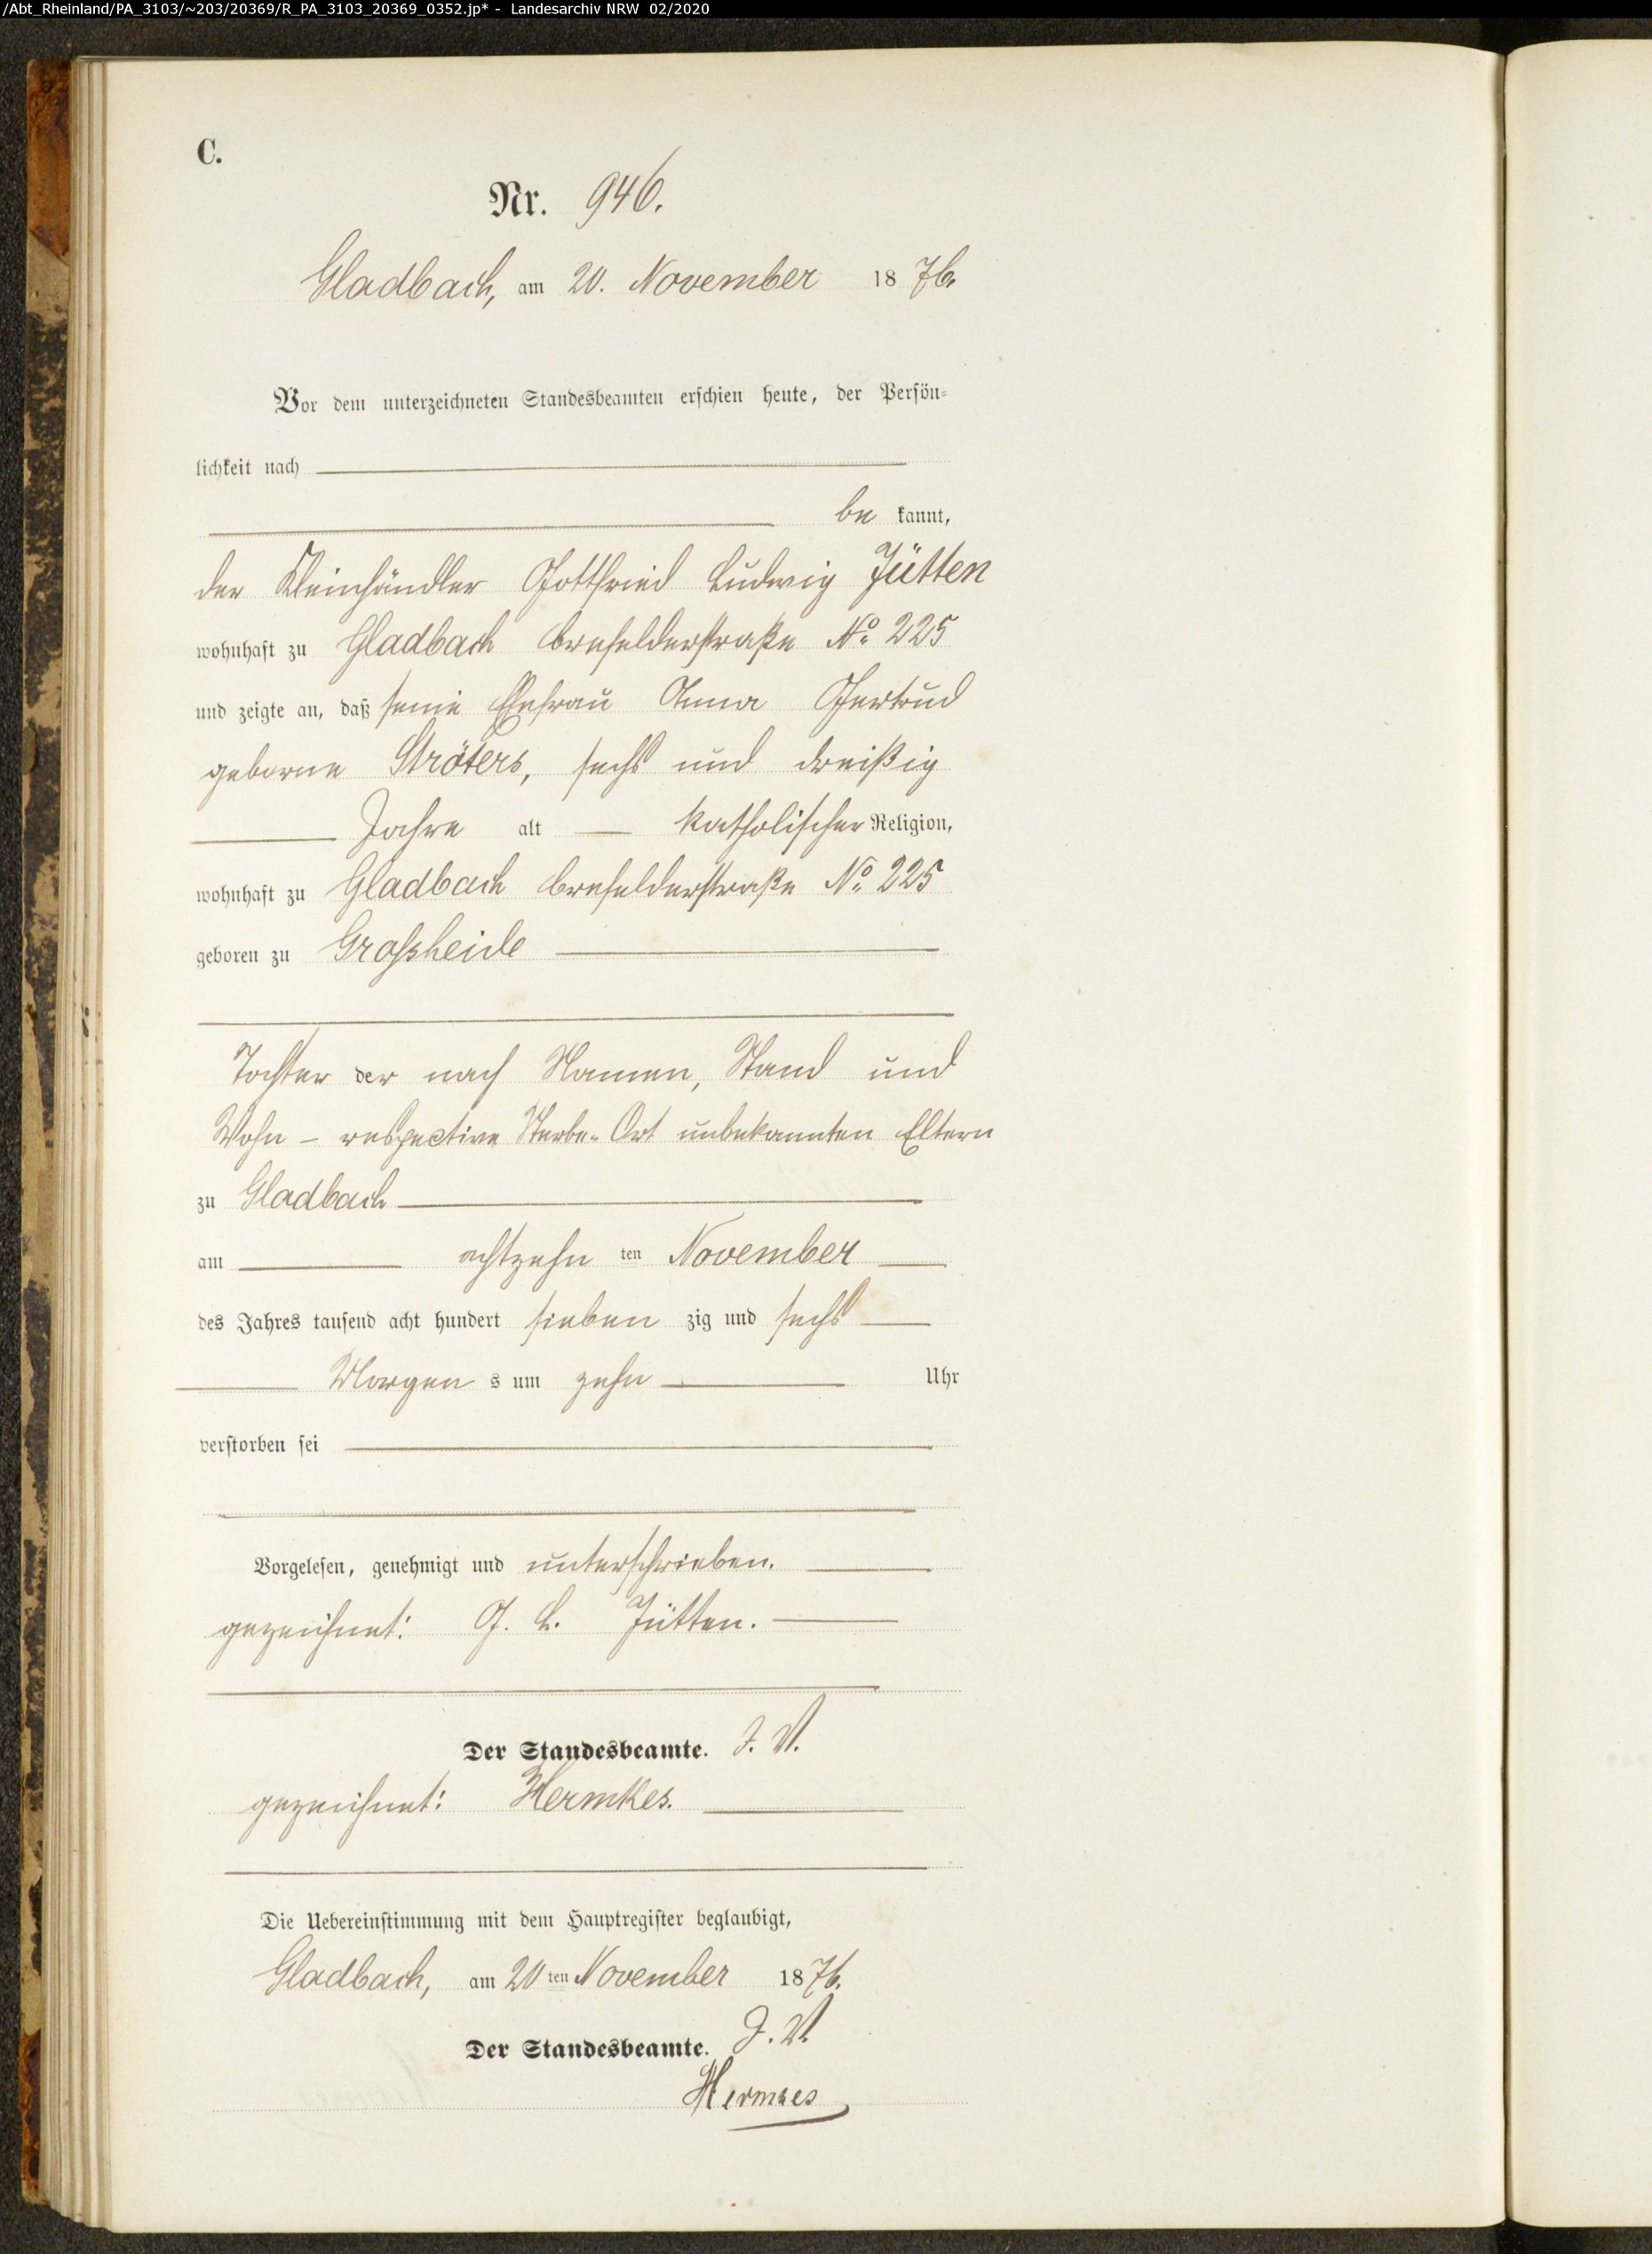 /Abt_Rheinland/PA_3103/~203/20369/R_PA_3103_20369_0352.jp* - Landesarchiv NRW 02/2020
C.
Nr. 946.
Gladbach, am 20. November 1876.
Vor dem unterzeichneten Standesbeamten erschien heute, der Persön-
lichkeit nach
be kannt,
der Kleinhändler Gottfried Ludwig Jütten
wohnhaft zu Gladbach Crefelderstraße No 225
und zeigte an, daß seine Ehefrau Anna Gertrud
geborne Ströters, sechs und dreißig
Jahre alt katholischer Religion,
wohnhaft zu Gladbach Crefelderstraße No 225
geboren zu Grossheide
Tochter der nach Namen, Stand und
Wohn- respective Sterbe-Ort unbekannten Eltern
zu Gladbach
am achtzehn ten November
des Jahres tausend acht hundert sieben zig und sechs
Morgen s um zehn Uhr
verstorben sei
Vorgelesen, genehmigt und unterschrieben.
gezeichnet: G. L. Jütten.
Der Standesbeamte. J. V.
gezeichnet: Hermkes.
Die Uebereinstimmung mit dem Hauptregister beglaubigt,
Gladbach, am 20 ten November 1876.
Der Standesbeamte. J. V.
Hermkes